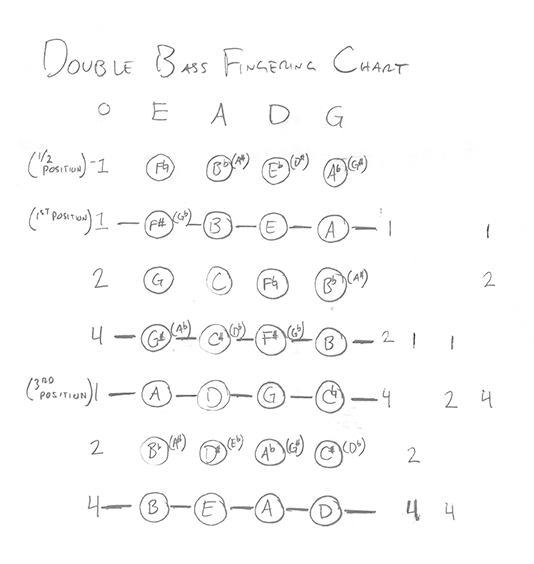 DOUBLE BASS FINGERING CHART
0 E A D G
(1/2 POSITION) -1 F♮ B♭(A#) E♭(D#) A♭(G#)
(1ST POSITION) 1 — F#(G♭) — B — E — A — 1 1
2 G C F♮ B♭(A#) 2
4 — G#(A♭) — C#(D♭) — F#(G♭) — B — 2 1 1
(3RD POSITION) 1 — A — D — G — C♮ — 4 2 4
2 B♭(A#) D#(E♭) A♭(G#) C#(D♭) 2
4 — B — E — A — D — 4 4